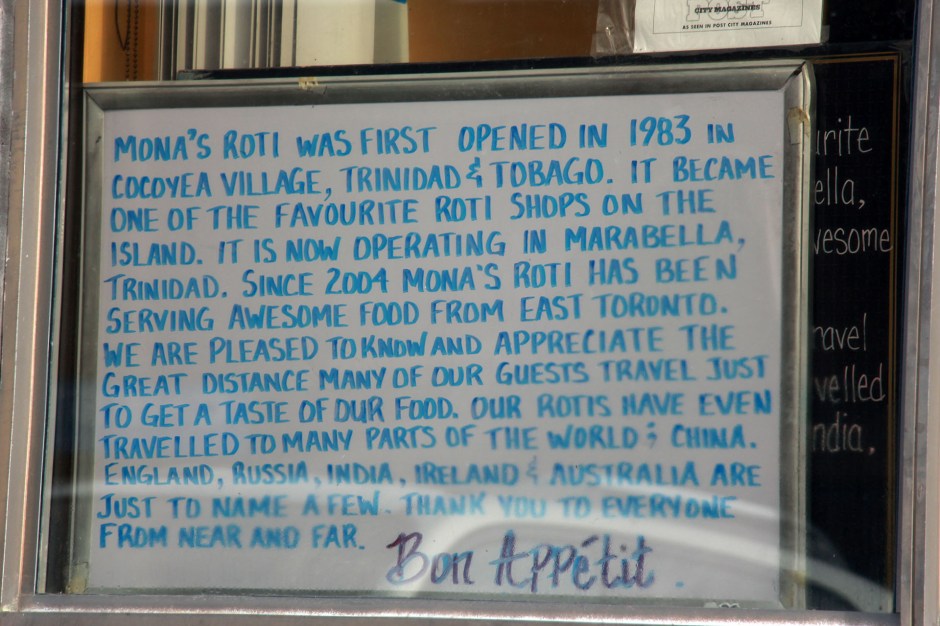 CITY MAGAZINES
AS SEEN IN POST CITY MAGAZINES
MONA'S ROTI WAS FIRST OPENED IN 1983 IN
COCOYEA VILLAGE, TRINIDAD & TOBAGO. IT BECAME
ONE OF THE FAVOURITE ROTI SHOPS ON THE
ISLAND. IT IS NOW OPERATING IN MARABELLA,
TRINIDAD. SINCE 2004 MONA'S ROTI HAS BEEN
SERVING AWESOME FOOD FROM EAST TORONTO.
WE ARE PLEASED TO KNOW AND APPRECIATE THE
GREAT DISTANCE MANY OF OUR GUESTS TRAVEL JUST
TO GET A TASTE OF OUR FOOD. OUR ROTIS HAVE EVEN
TRAVELLED TO MANY PARTS OF THE WORLD ; CHINA.
ENGLAND, RUSSIA, INDIA, IRELAND & AUSTRALIA ARE
JUST TO NAME A FEW. THANK YOU TO EVERYONE
FROM NEAR AND FAR. Bon Appétit.
urite
ella,
vesome
ravel
velled
ndia.